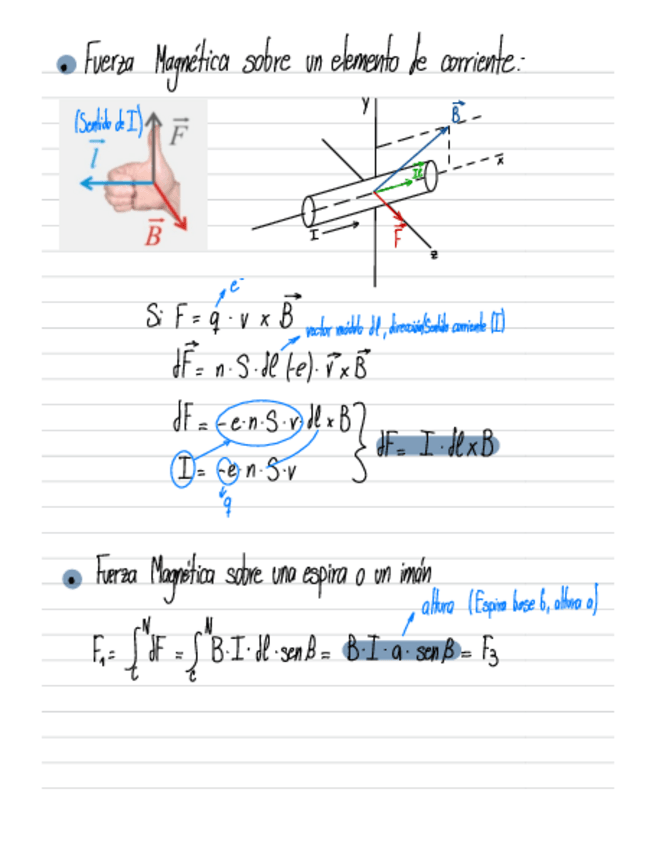 • Fuerza Magnética sobre un elemento de corriente:
(Sentido de I)
F
l
B
y
B
x
I
F
z
e⁻
Si F = q · v x B
vector módulo dl, dirección/Sentido corriente (I)
dF = n·S·dl (-e)· v x B
dF = -e·n·S·v· dl x B
dF = I · dl x B
I = -e·n·S·v
q
• Fuerza Magnética sobre una espira o un imán
altura (Espira base b, altura a)
F₁ = ∫ᴺ dF = ∫ᴺ B·I·dl·senβ = B·I·a·senβ = F₃